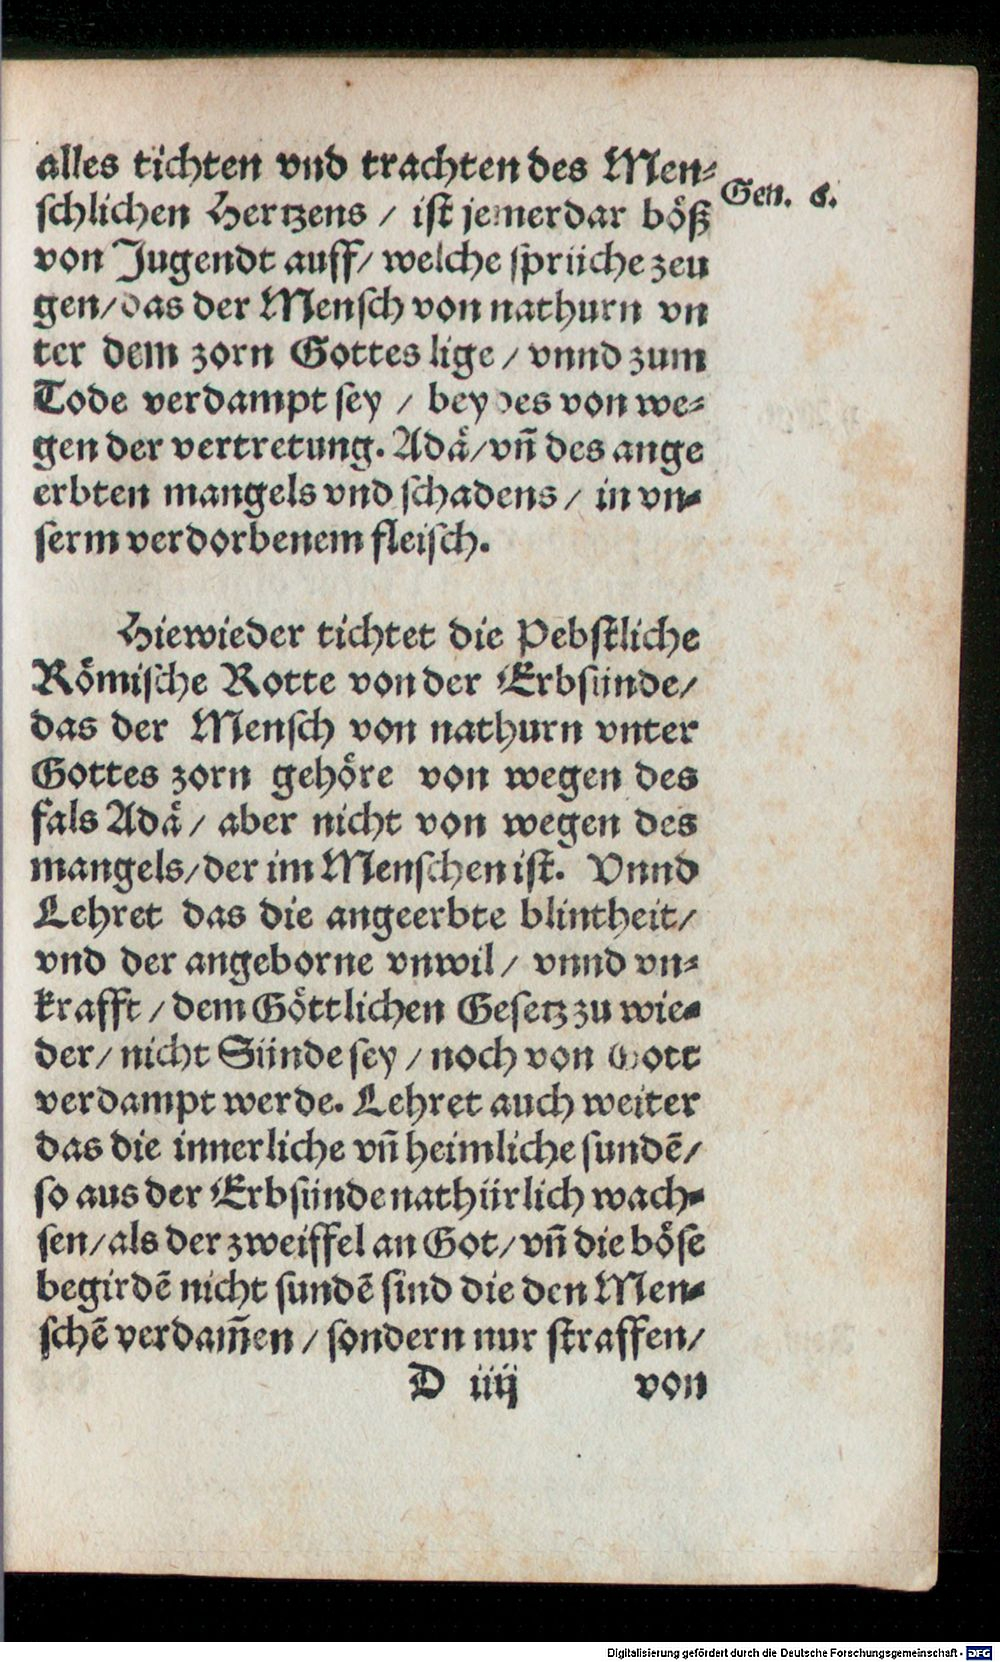 alles tichten vnd trachten des Men⸗
schlichen Hertzens / ist jemerdar böß
Gen. 6.
von Jugendt auff / welche sprüche zeu
gen / das der Mensch von nathurn vn
ter dem zorn Gottes lige / vnnd zum
Tode verdampt sey / beydes von we⸗
gen der vertretung. Adä / vñ des ange
erbten mangels vnd schadens / in vn⸗
serm verdorbenem fleisch.
Hiewieder tichtet die Pebstliche
Römische Rotte von der Erbsünde /
das der Mensch von nathurn vnter
Gottes zorn gehöre von wegen des
fals Adä / aber nicht von wegen des
mangels / der im Menschen ist. Vnnd
Lehret das die angeerbte blintheit /
vnd der angeborne vnwil / vnnd vn⸗
krafft / dem Göttlichen Gesetz zu wie⸗
der / nicht Sünde sey / noch von Gott
verdampt werde. Lehret auch weiter
das die innerliche vñ heimliche sundẽ /
so aus der Erbsünde nathürlich wach⸗
sen / als der zweiffel an Got / vñ die böse
begirdẽ nicht sundẽ sind die den Men⸗
schẽ verdam̃en / sondern nur straffen /
D iiij von
Digitalisierung gefördert durch die Deutsche Forschungsgemeinschaft - DFG